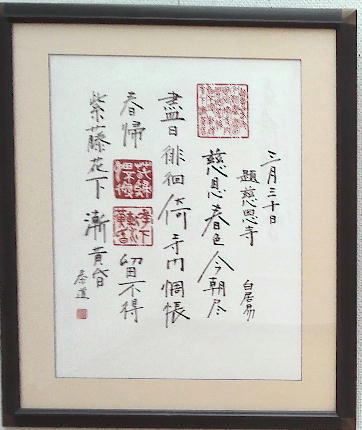 三月三十日
題慈恩寺
白居易
慈恩春色今朝尽
盡日徘徊倚寺門惆悵
春帰留不得
紫藤花下漸黄昏